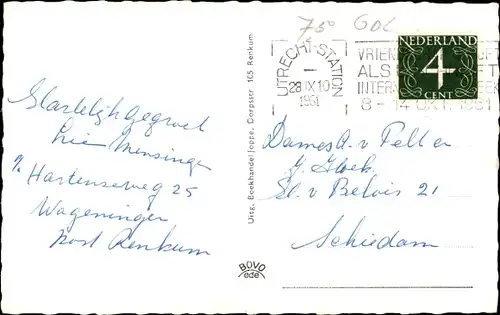 75⁰ GDL
UTRECHT-STATION
28 IX 10
1961
VRIEN
ALS
INTER
8 - 14 OKT. 1961
NEDERLAND
4
CENT
Hartelijk gegroet
Mensinga
% Hartenseweg 25
Wageningen
post Renkum
Uitg. Boekhandel Joppe, Dorpsstr 165 Renkum
BOVO
ede
Dames A. v Felter
J. Hoek
v Belois 21
Schiedam